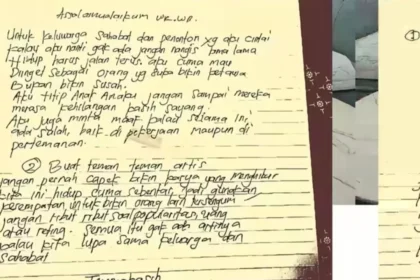 Assalamualaikum WR.WB.
Untuk keluarga sahabat dan penonton yg apu cintai
kalau apu nanti gak ada jangan nangis lama lama
Hidup harus jalan terus apu cuma mau
Dingel sebagai orang yg bikin ketawa
Bukan bikin susah.
Apu titip Anak Anakpu jangan sampai mereka
merasa kehilangan kasih sayang.
Apu juga minta maaf kalau selama ini
ada salah, baik di pekerjaan maupun di
pertemanan.
② Buat teman teman artis
jangan pernah capek bikin karya yang menghibur
ini hidup cuma sebentar, jadi gunakan
kesempatan untuk bikin orang lain tersenyum
jangan ribut ribut soal popularitas, uang
atau rating. semua itu gak ada artinya
kalau kita lupa sama keluarga dan
sahabat
①